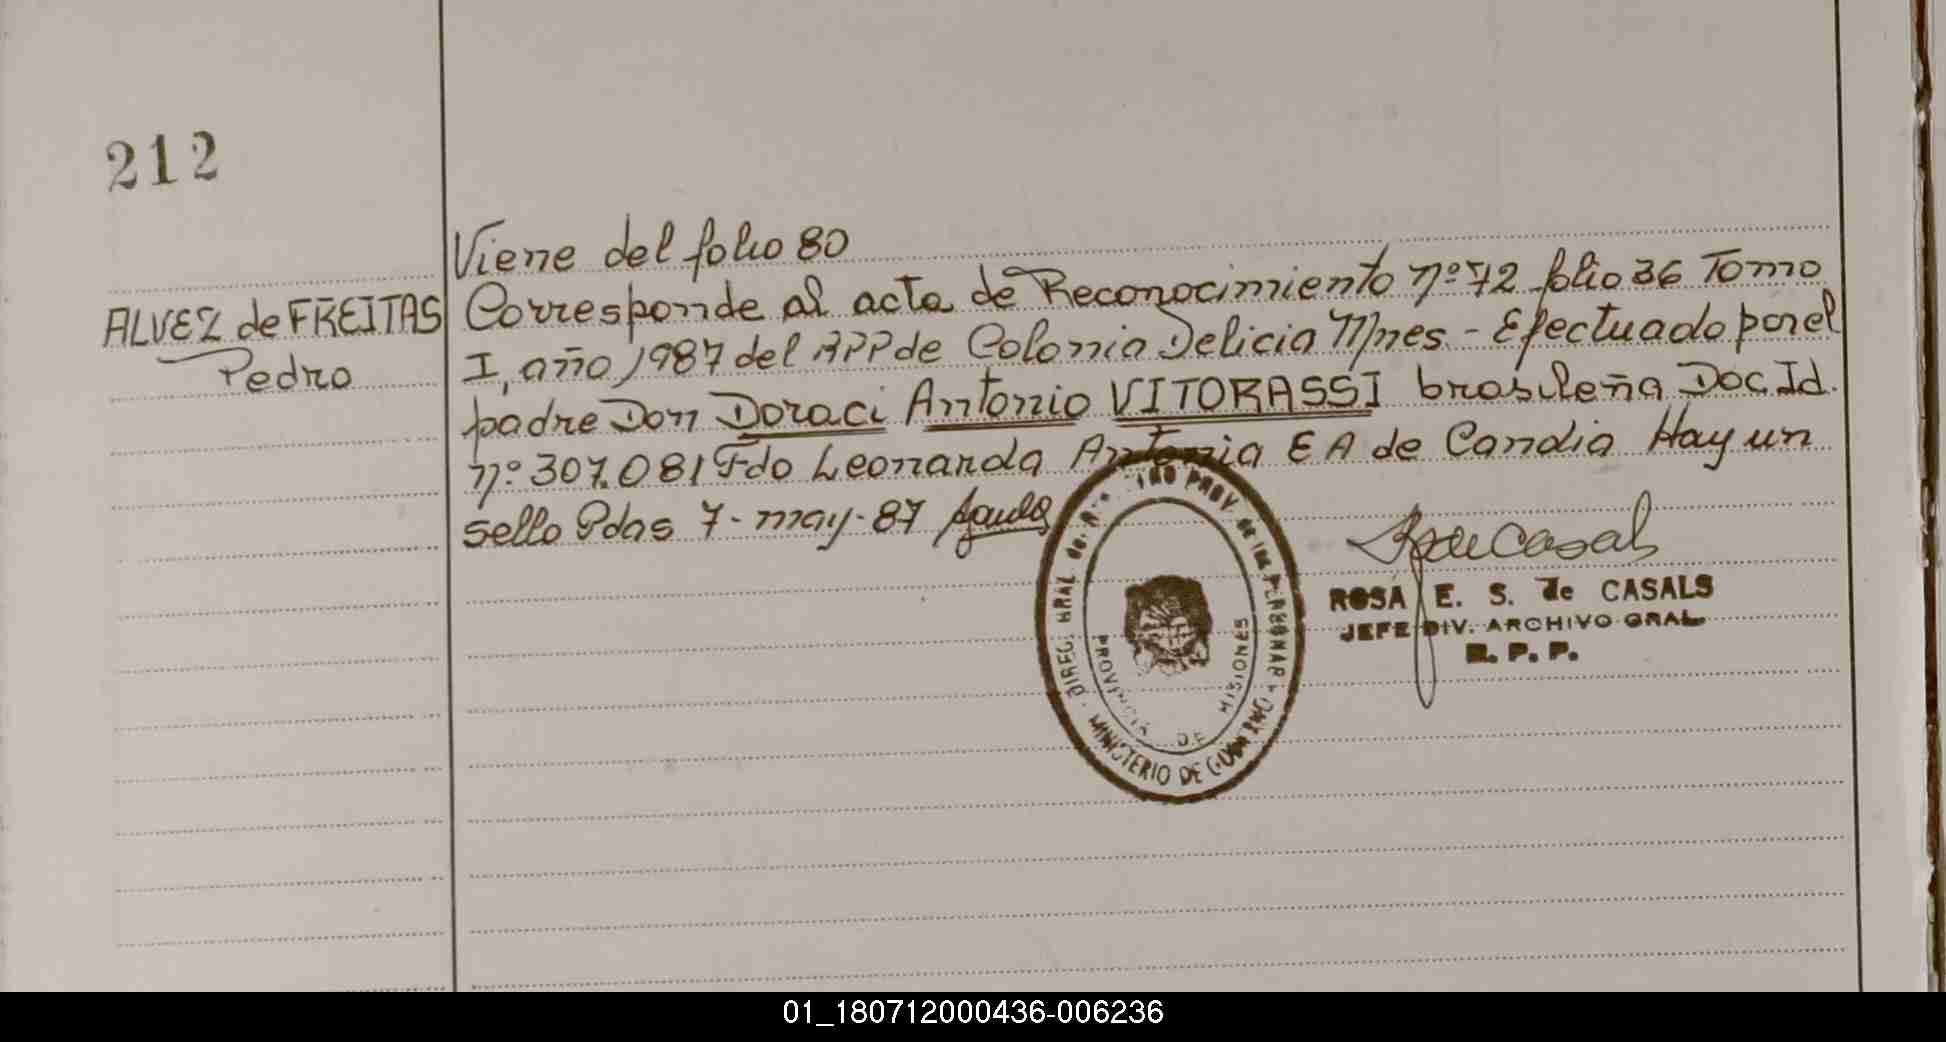 212
Viene del folio 80
ALVEZ de FREITAS
Pedro
Corresponde al acta de Reconocimiento nº 72 folio 36 Tomo
I, año 1987 del RPP de Colonia Delicia Mnes. - Efectuado por el
padre Don Doraci Antonio VITORASSI brasileña Doc Id.
nº 307.081 Fdo Leonarda Antonia E A de Candia Hay un
sello Pdas 7-may-87
ROSA E. S. de CASALS
JEFE DIV. ARCHIVO GRAL
R. P. P.
DIREC. GRAL PROV. de las PERSONAS
MINISTERIO DE GOBIERNO
PROVINCIA DE MISIONES
01_180712000436-006236